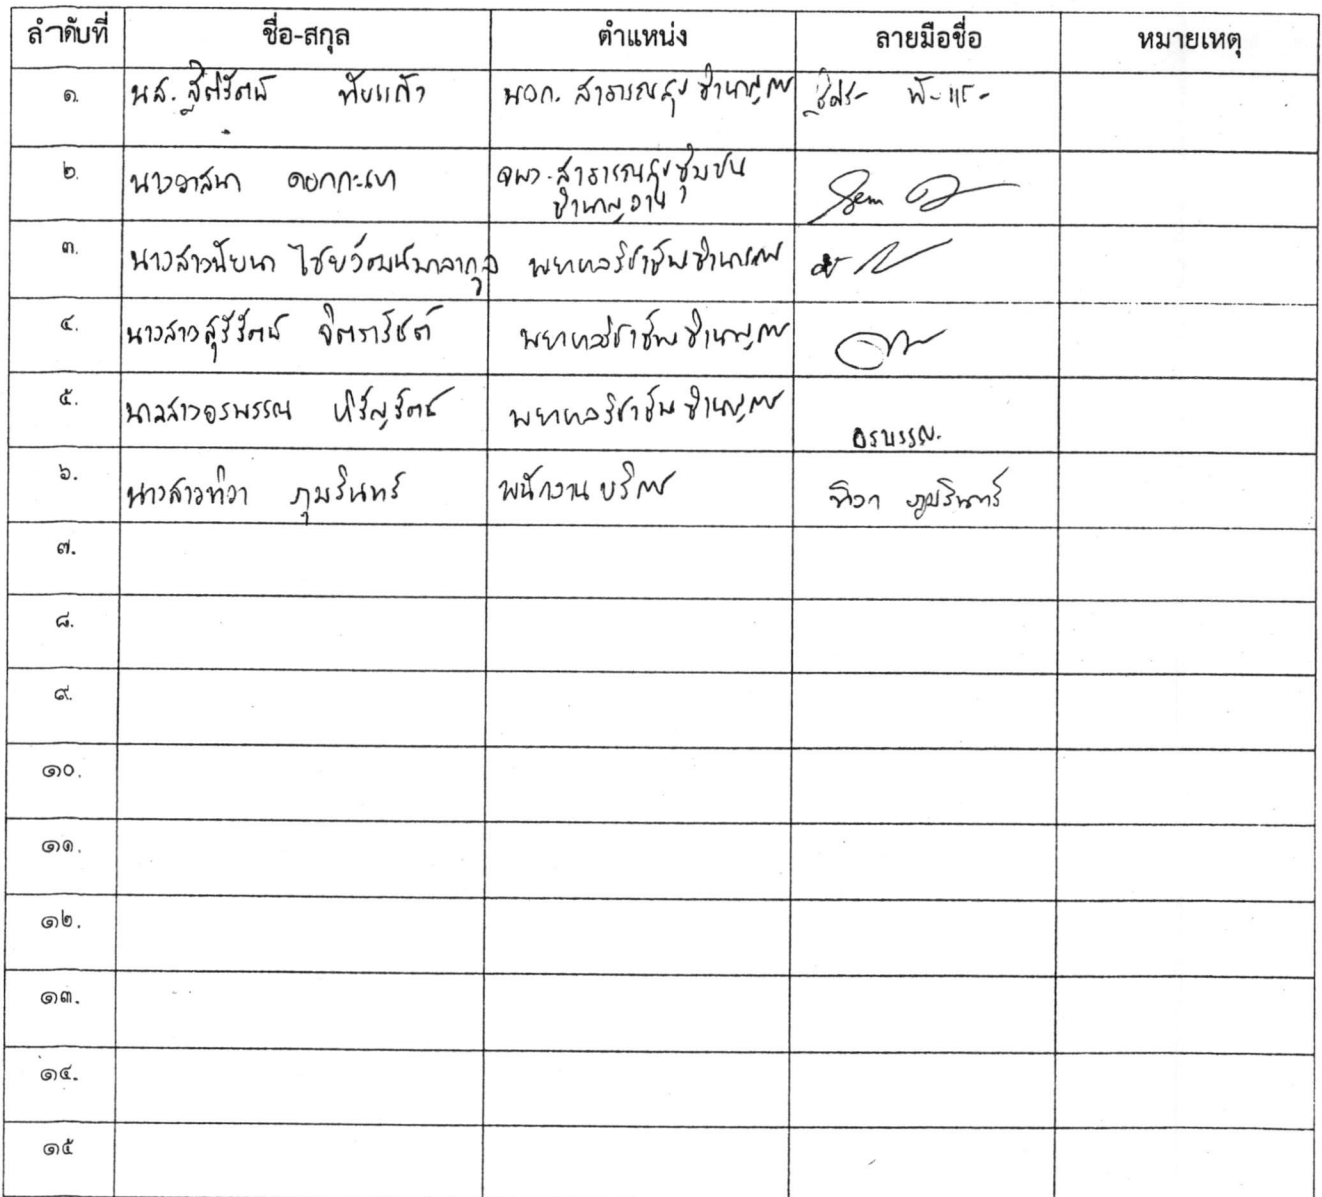 ลำดับที่ ชื่อ-สกุล ตำแหน่ง ลายมือชื่อ หมายเหตุ
๑ นส. ฐิติรัตน์ ทับแก้ว นวก. สาธารณสุขชำนาญการ
๒. นางวาสนา ดอกกะเบา จพง. สาธารณสุขชุมชน
ชำนาญงาน
๓. นางสาวนัยนา ไชยวัฒน์มาลากูล พยาบาลวิชาชีพชำนาญการ
๔. นางสาวสุรีรัตน์ จิตรารัชต์ พยาบาลวิชาชีพชำนาญการ
๕. นางสาวอรพรรณ หิรัญรัตน์ พยาบาลวิชาชีพชำนาญการ อรพรรณ.
๖. นางสาวทิวา ภุมรินทร์ พนักงานบริการ ทิวา ภุมรินทร์
๗.
๘.
๙.
๑๐.
๑๑.
๑๒.
๑๓.
๑๔.
๑๕